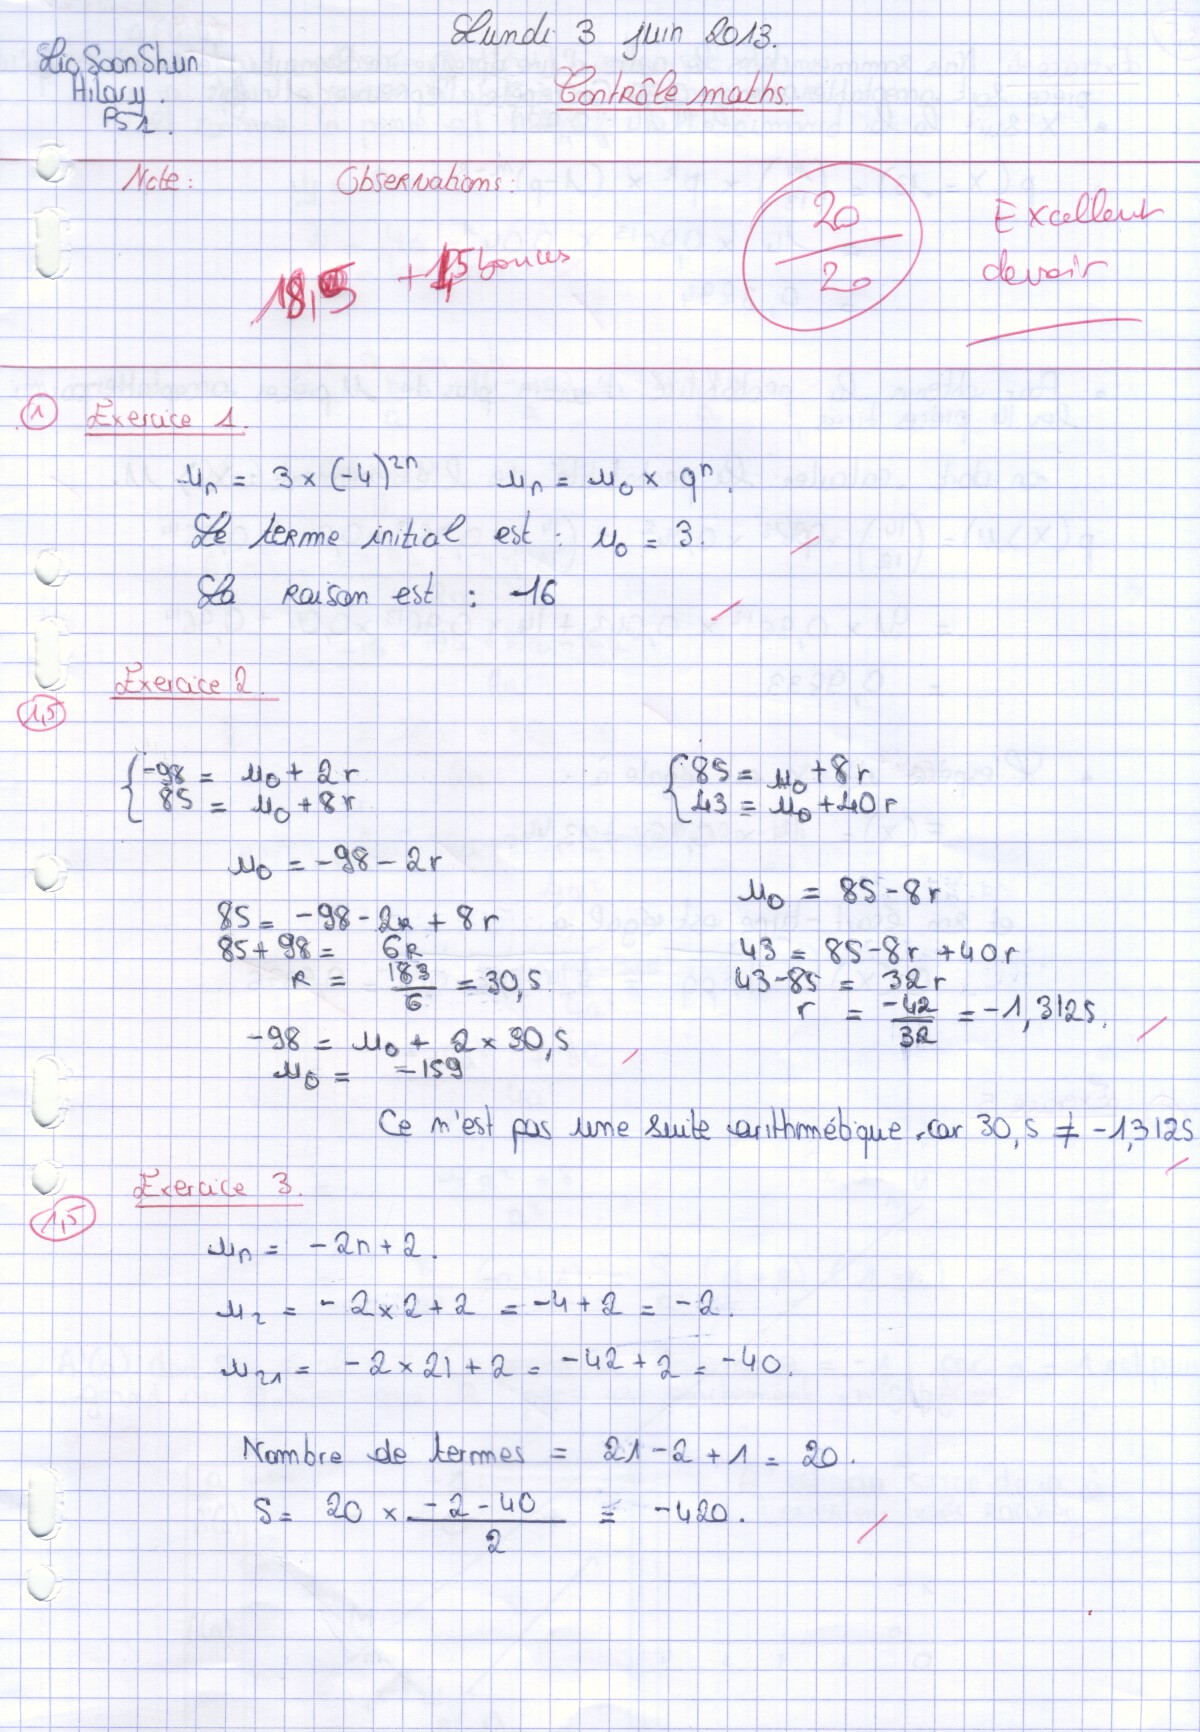 Lundi 3 juin 2013.
Hilary.
PS1.
Contrôle maths.
Note:
Observations:
18,5 + 1,5 bonus
20
20
Excellent
devoir
1 Exercice 1.
un = 3 × (-4)^2n   un = u0 × q^n.
Le terme initial est : u0 = 3.
La raison est : 16
Exercice 2.
1,5
{-98 = u0 + 2r
85 = u0 + 8r
u0 = -98 - 2r
85 = -98 - 2r + 8r
85 + 98 = 6r
r = 183/6 = 30,5
-98 = u0 + 2 × 30,5
u0 = -159
{85 = u0 + 8r
43 = u0 + 40r
u0 = 85 - 8r
43 = 85 - 8r + 40r
43 - 85 = 32r
r = -42/32 = -1,3125.
Ce n'est pas une suite arithmétique car 30,5 ≠ -1,3125
Exercice 3.
1,5
un = -2n + 2.
u2 = -2 × 2 + 2 = -4 + 2 = -2.
u21 = -2 × 21 + 2 = -42 + 2 = -40.
Nombre de termes = 21 - 2 + 1 = 20.
S = 20 × (-2 - 40)/2 = -420.